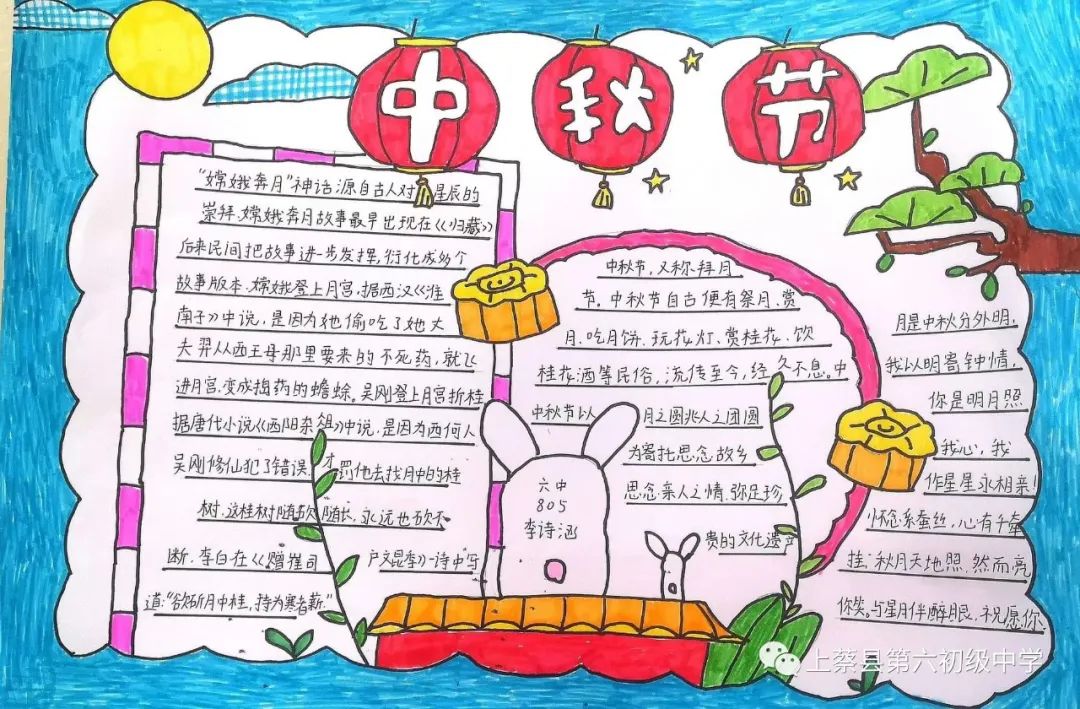 中秋节
"嫦娥奔月"神话源自古人对星辰的
崇拜、嫦娥奔月故事最早出现在《归藏》
后来民间把故事进一步发挥,衍化成多个
故事版本、嫦娥登上月宫,据西汉《淮
南子》中说,是因为她偷吃了她丈
夫羿从西王母那里要来的不死药,就飞
进月宫.变成捣药的蟾蜍。吴刚登上月宫折桂
据唐代小说《酉阳杂俎》中说,是因为西何人
吴刚修仙犯了错误,才罚他去找月中的桂
树.这桂树随砍随长,永远也砍不
断.李白在《赠崔司户文昆季》一诗中写
道:"欲斫月中桂,持为寒者薪."
中秋节,又称拜月
节.中秋节自古便有祭月、赏
月、吃月饼、玩花灯、赏桂花、饮
桂花酒等民俗,流传至今,经久不息。中
中秋节以月之圆兆人之团圆
为寄托思念故乡
思念亲人之情.弥足珍
贵的文化遗产
月是中秋分外明,
我以明寄钟情,
你是明月照
我心,我
作星星永相亲!
怀念系蚕丝,心有千牵
挂;秋月天地照.然而亮
你笑。与星月伴醉眼、祝愿你
六中
805
李诗涵
上蔡县第六初级中学